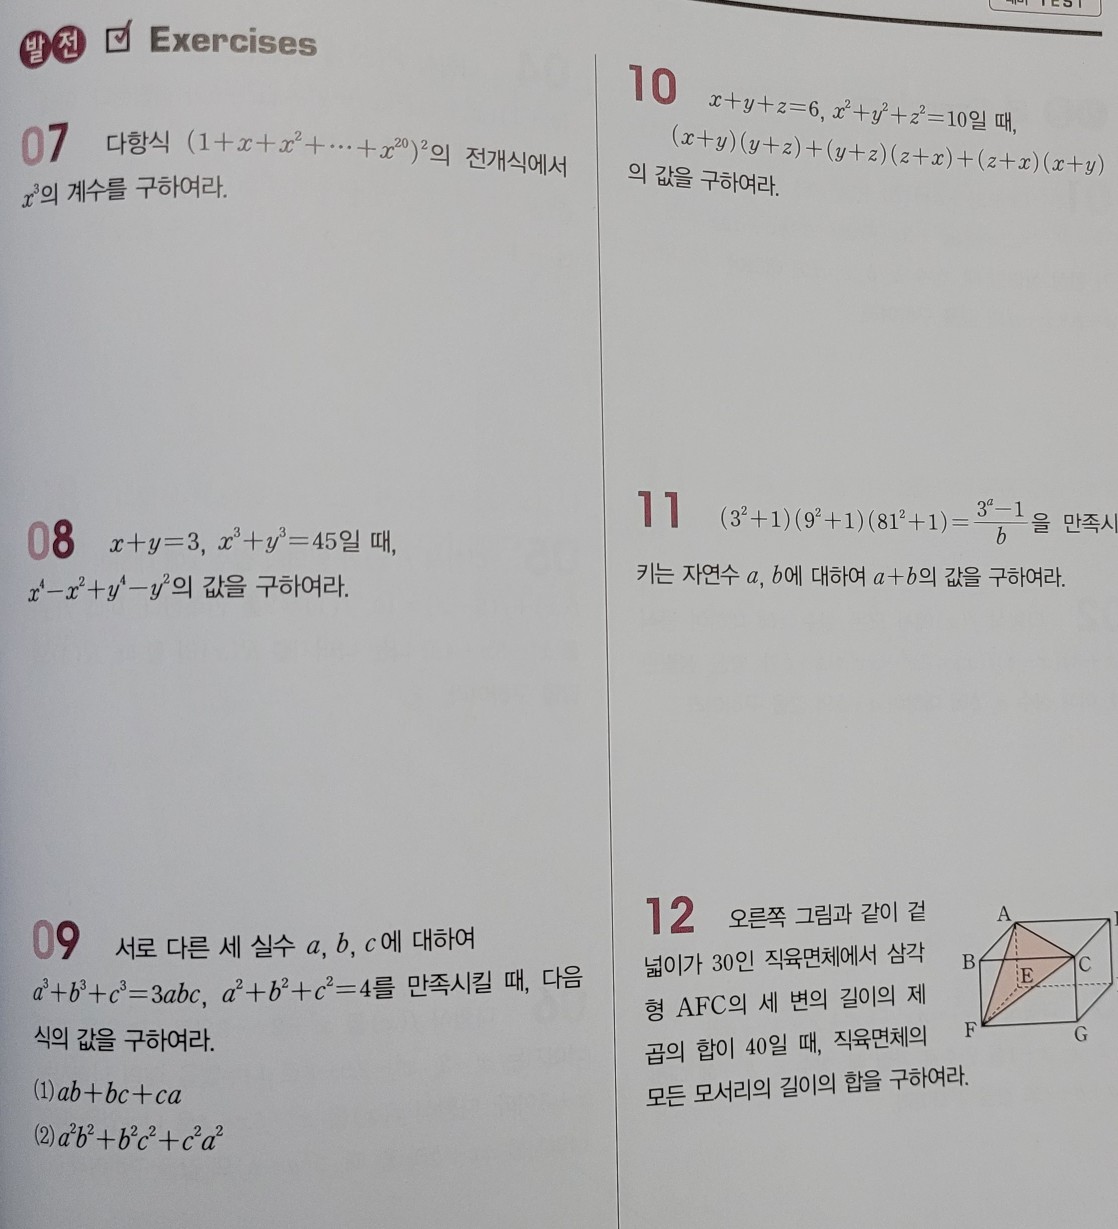 TEST
발전 Exercises
07 다항식 (1+x+x²+⋯+x²⁰)²의 전개식에서
x³의 계수를 구하여라.
08 x+y=3, x³+y³=45일 때,
x⁴-x²+y⁴-y²의 값을 구하여라.
09 서로 다른 세 실수 a, b, c에 대하여
a³+b³+c³=3abc, a²+b²+c²=4를 만족시킬 때, 다음
식의 값을 구하여라.
(1) ab+bc+ca
(2) a²b²+b²c²+c²a²
10 x+y+z=6, x²+y²+z²=10일 때,
(x+y)(y+z)+(y+z)(z+x)+(z+x)(x+y)
의 값을 구하여라.
11 (3²+1)(9²+1)(81²+1)=\frac{3ᵃ-1}{b}을 만족시
키는 자연수 a, b에 대하여 a+b의 값을 구하여라.
12 오른쪽 그림과 같이 겉
넓이가 30인 직육면체에서 삼각
형 AFC의 세 변의 길이의 제
곱의 합이 40일 때, 직육면체의
모든 모서리의 길이의 합을 구하여라.
A
B
C
E
F
G